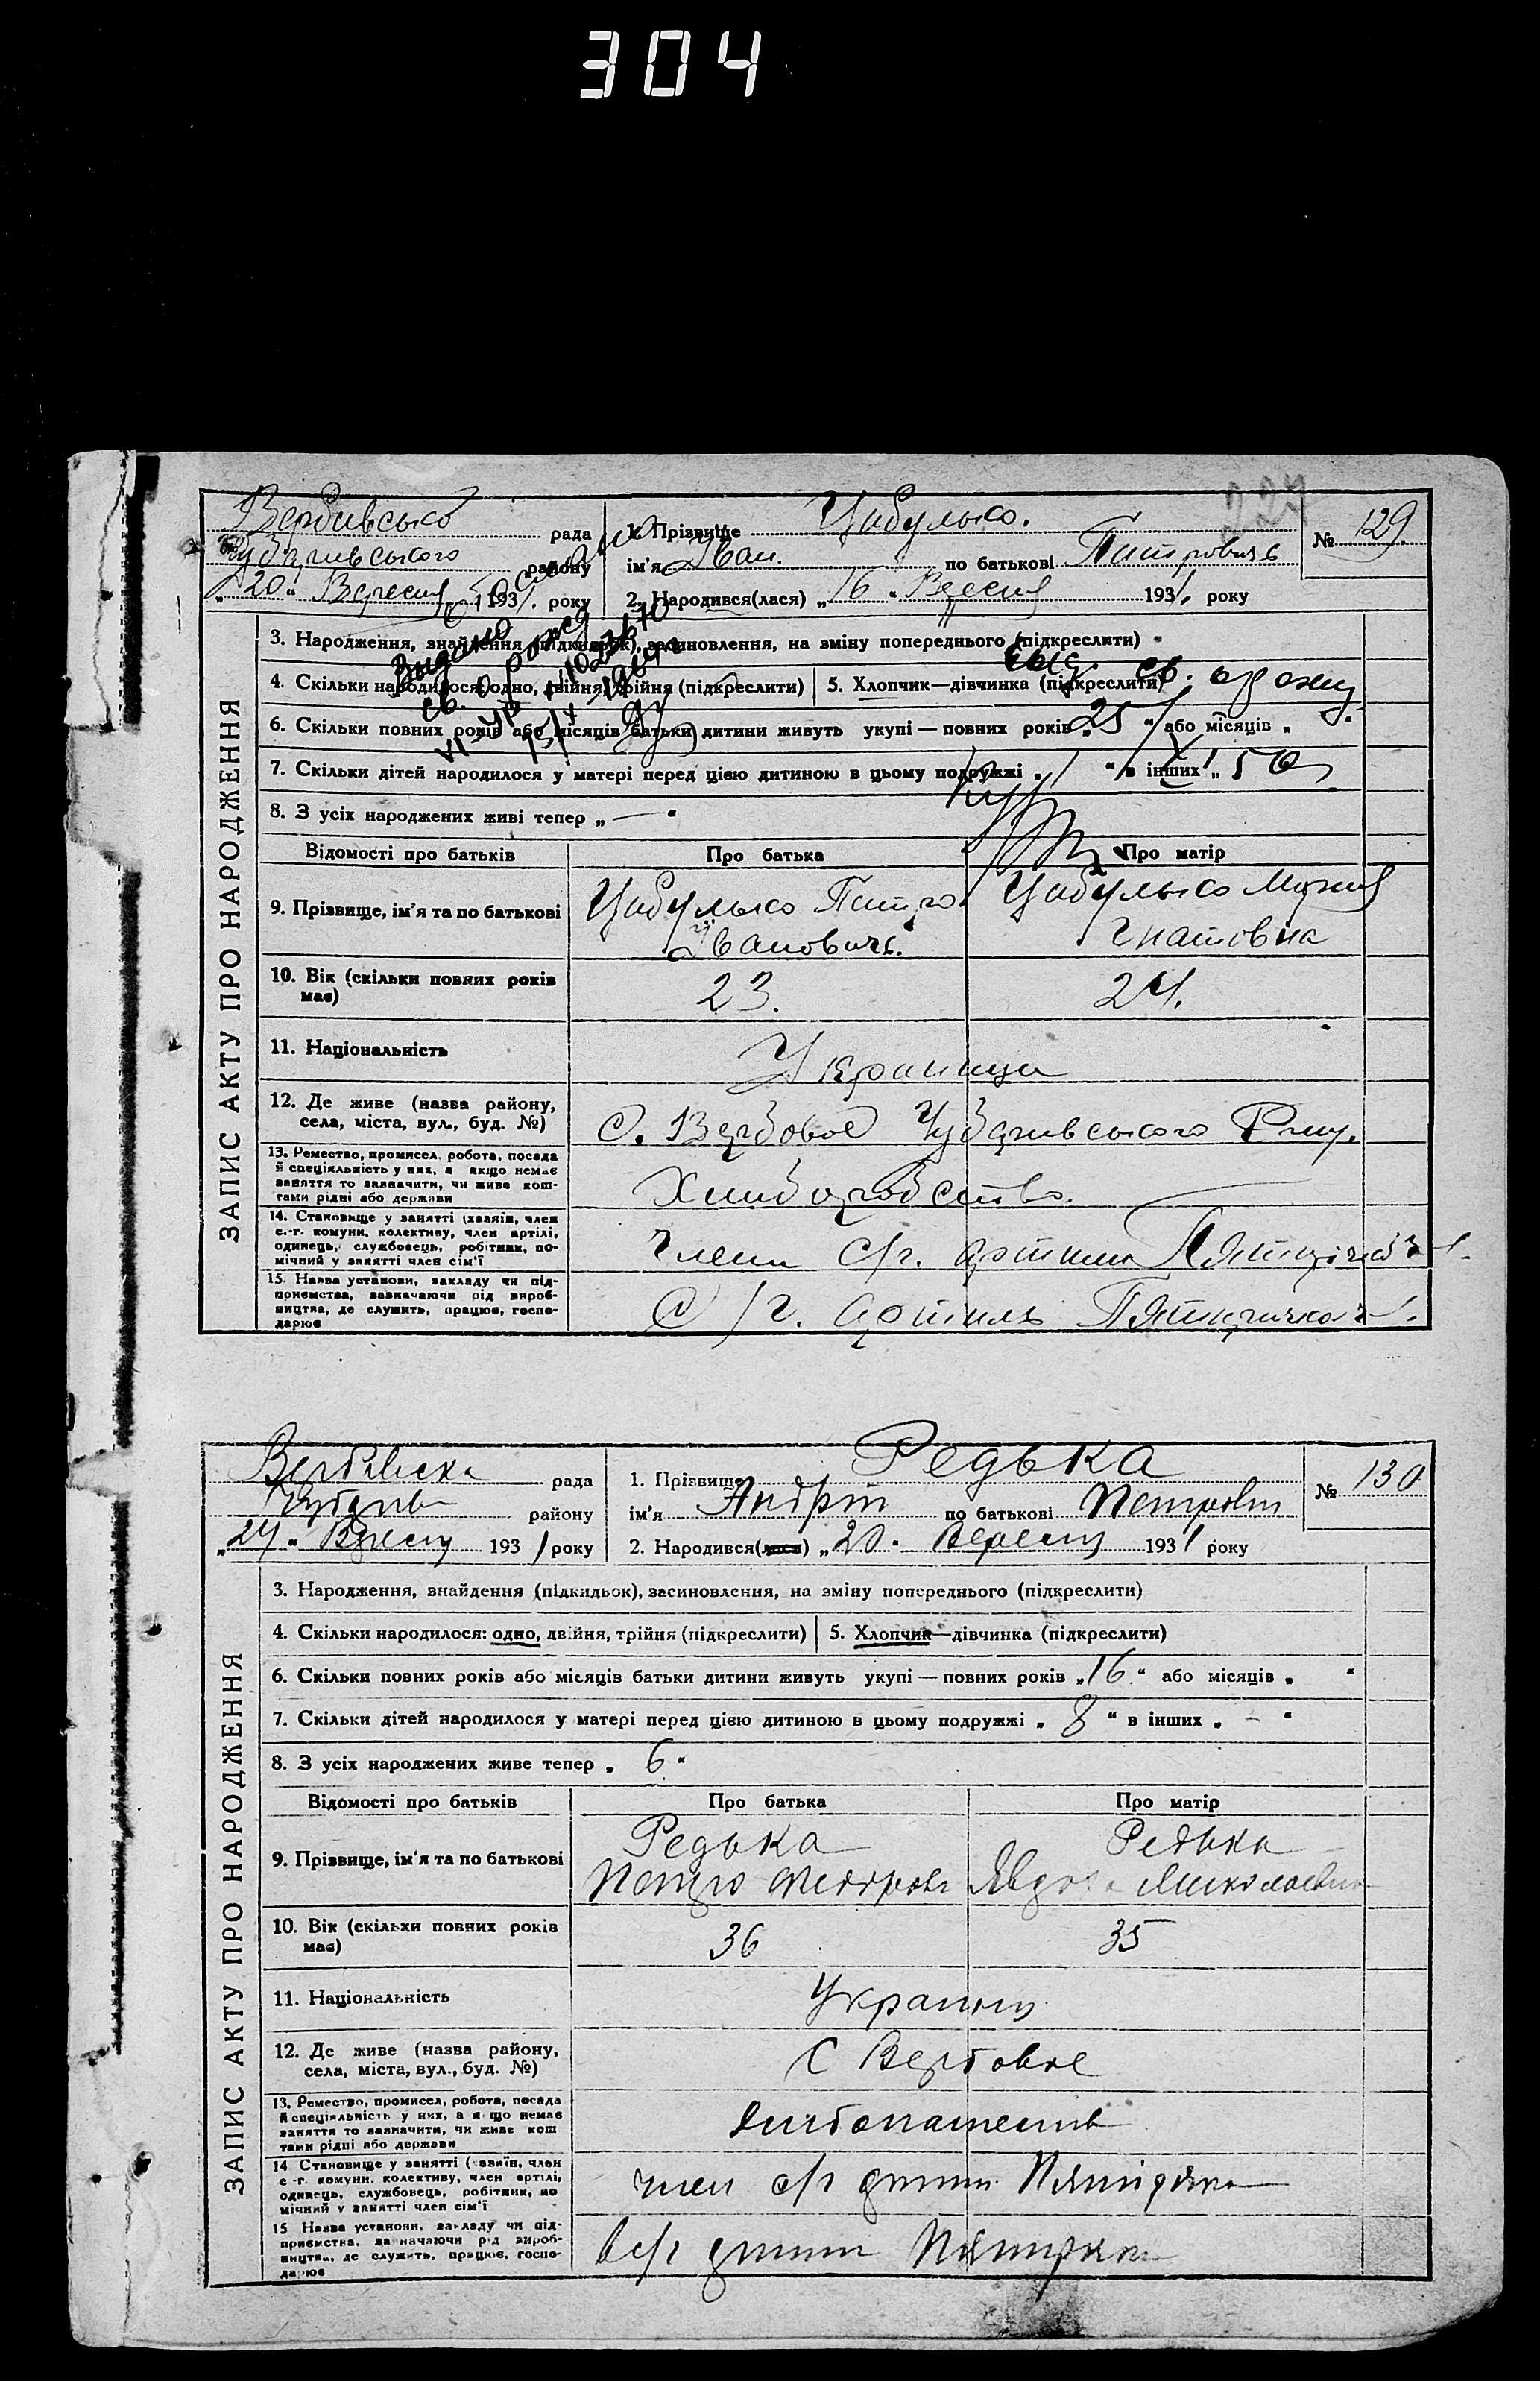 304
Вербівсько рада
району
„20“ Вересня 1931. року
1. Прізвище Цибулько.
ім'я Іван. по батькові Питровичь
2. Народився(лася) „16“ Вересня 1931. року
№ 129
227
ЗАПИС АКТУ ПРО НАРОДЖЕННЯ
3. Народження, знайдення (підкидьок), засиновлення, на зміну попереднього (підкреслити)
4. Скільки народилося: одно, двійня, трійня (підкреслити)
5. Хлопчик—дівчинка (підкреслити)
Видано
св. о рожд
6. Скільки повних років або місяців батьки дитини живуть укупі — повних років „ “ або місяців „
7. Скільки дітей народилося у матері перед цією дитиною в цьому подружжі „1 “ в інших „
8. З усіх народжених живі тепер „—“
Відомості про батьків
Про батька
Про матір
9. Прізвище, ім'я та по батькові
Цибулько Питро
Ивановичь.
Цибулько Мария
Гнатовна
10. Вік (скільки повних років має)
23.
24.
11. Національність
Українци
12. Де живе (назва району, села, міста, вул., буд. №)
С. Вербовое
13. Ремество, промисел, робота, посада
й спеціяльність у них, а якщо немає
заняття то зазначити, чи живе кош-
тами рідні або держави
Хлиборобство.
14. Становище у занятті (хазяїн, член
с.-г. комуни, колективу, член артілі,
одинець, службовець, робітник, по-
мічний у занятті член сім'ї
Член с/г. артили
15. Назва установи, закладу чи під-
приємства, зазначаючи рід вироб-
ництва, де служить, працює, госпо-
дарює
С/г. Артиль
Вербівська рада
району
„24“ Вересня 1931 року
1. Прізвище Редька
ім'я Андрій по батькові Петрович
2. Народився(лася) „20“ Вересня 1931 року
№ 130
ЗАПИС АКТУ ПРО НАРОДЖЕННЯ
3. Народження, знайдення (підкидьок), засиновлення, на зміну попереднього (підкреслити)
4. Скільки народилося: одно, двійня, трійня (підкреслити)
5. Хлопчик—дівчинка (підкреслити)
6. Скільки повних років або місяців батьки дитини живуть укупі — повних років „16“ або місяців „ “
7. Скільки дітей народилося у матері перед цією дитиною в цьому подружжі „8“ в інших „-“
8. З усіх народжених живе тепер „6“
Відомості про батьків
Про батька
Про матір
9. Прізвище, ім'я та по батькові
Редька
Петро Федорович
Редька
Явдоха Миколаевна
10. Вік (скільки повних років має)
36
35
11. Національність
Українці
12. Де живе (назва району, села, міста, вул., буд. №)
С Вербовое
13. Ремество, промисел, робота, посада
й спеціяльність у них, а якщо немає
заняття то зазначити, чи живе кош
тами рідні або держави
14 Становище у занятті (хазяїн, член
с-г. комуни, колективу, член артілі,
одинець, службовець, робітник, по
мічний у занятті член сім'ї
член с/г
15 Назва установи, закладу чи під-
приємства, зазначаючи рід вироб-
ництва, де служить, працює, госпо-
дарює
в с/г